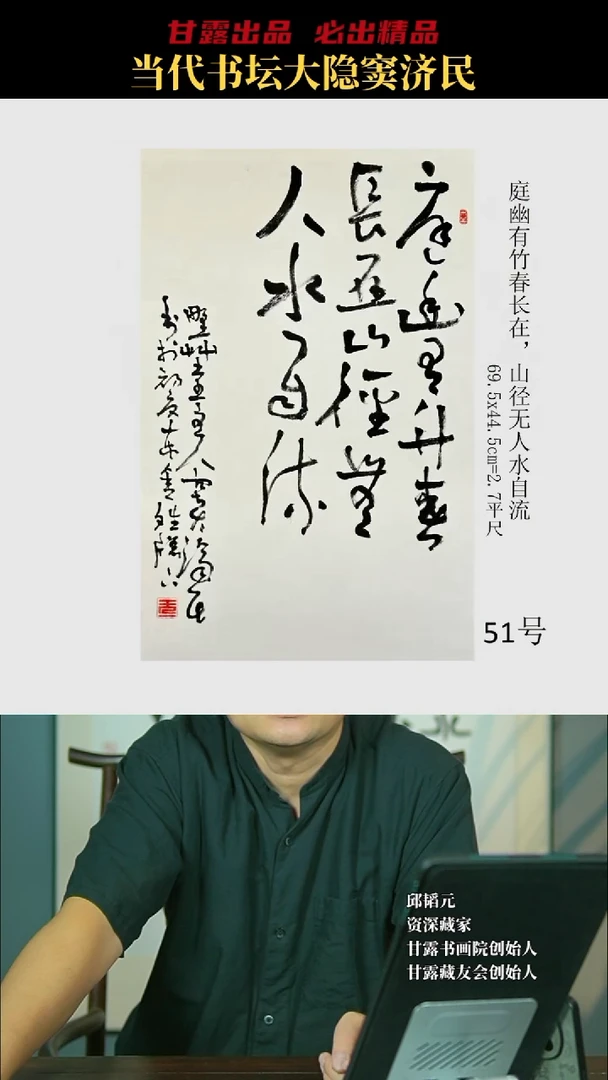 甘露出品 必出精品
当代书坛大隐窦济民
庭幽有竹春
长在山径无
人水自流
庭幽有竹春长在，山径无人水自流
69.5x44.5cm=2.7平尺
51号
邱韬元
资深藏家
甘露书画院创始人
甘露藏友会创始人